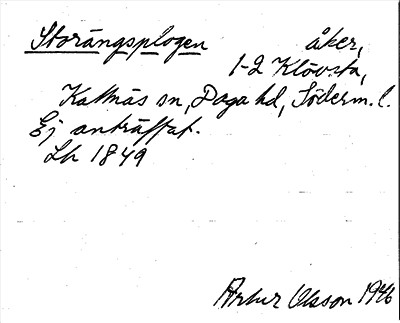 Storängsplogen åker,
1-2 Klövsta,
Kattnäs sn, Daga hd, Söderm. l.
Ej anträffat.
Lh 1849
Arthur Olsson 1946